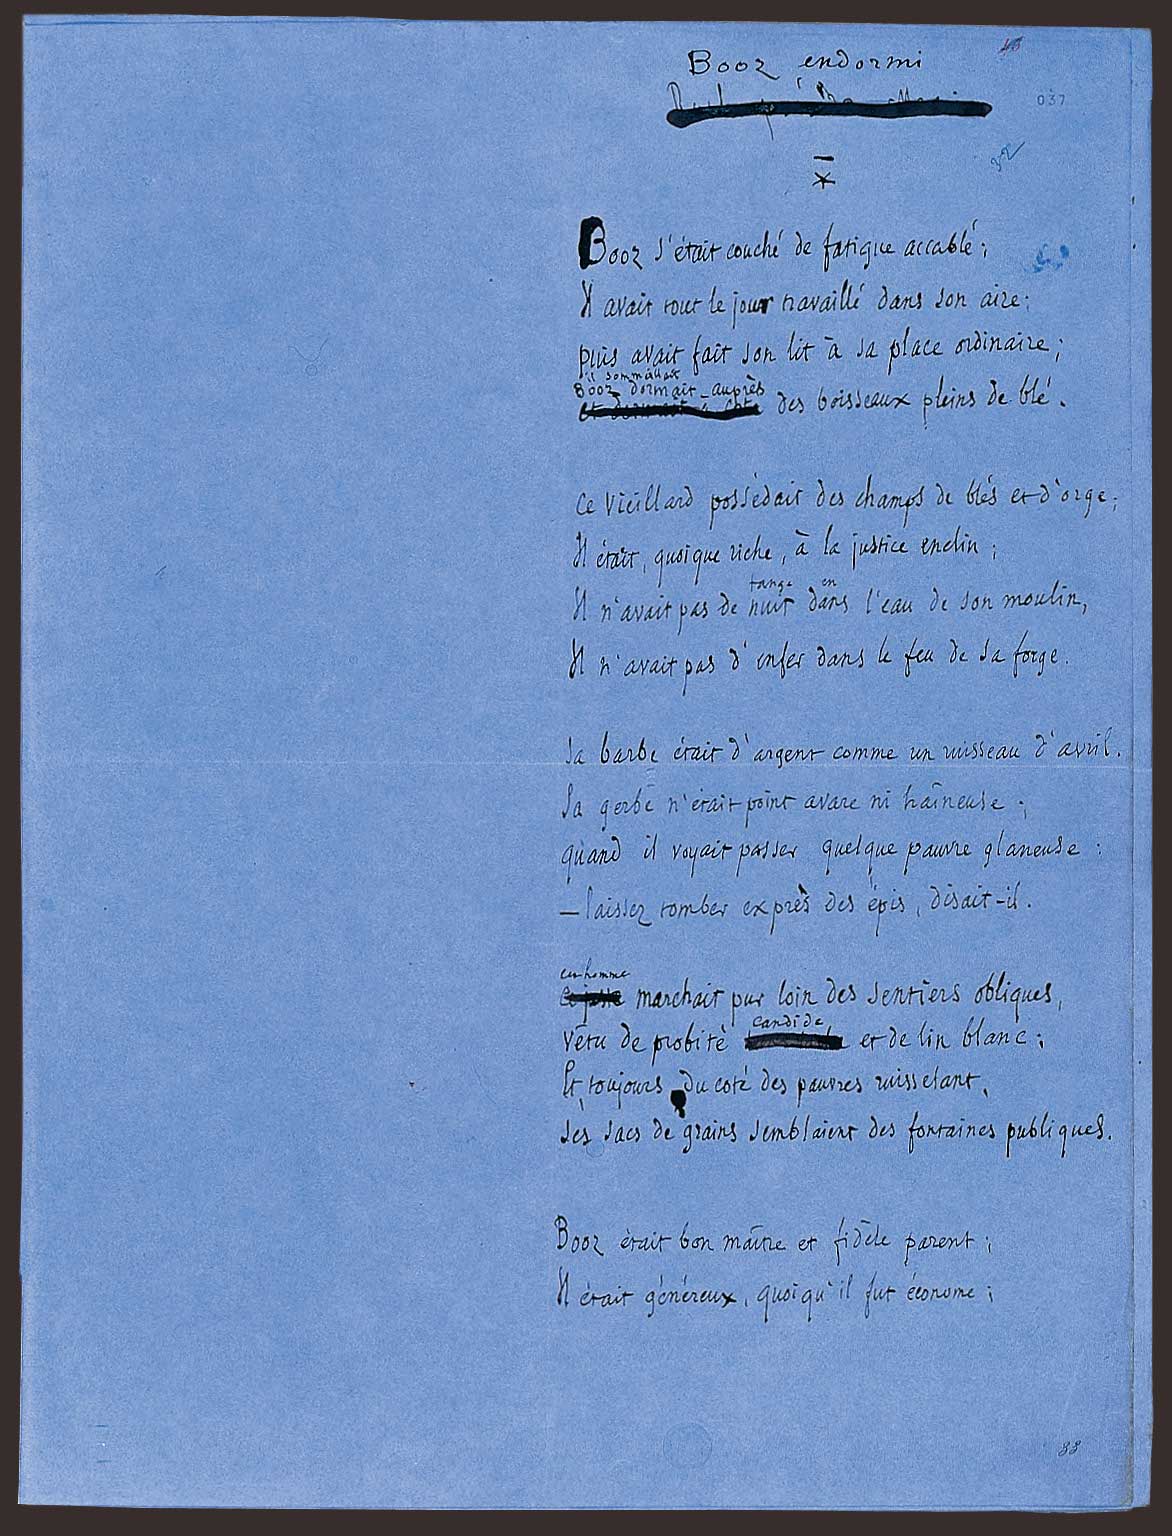 43
Booz endormi
037
32
Booz s'était couché de fatigue accablé ;
Il avait tout le jour travaillé dans son aire ;
puis avait fait son lit à sa place ordinaire ;
il sommeillait
Booz dormait auprès
et dormait à côté des boisseaux pleins de blé.
Ce vieillard possédait des champs de blés et d'orge ;
Il était, quoique riche, à la justice enclin ;
fange en
Il n'avait pas de nuit dans l'eau de son moulin,
Il n'avait pas d'enfer dans le feu de sa forge.
Sa barbe était d'argent comme un ruisseau d'avril.
Sa gerbe n'était point avare ni haineuse ;
quand il voyait passer quelque pauvre glaneuse :
— laissez tomber exprès des épis, disait-il.
cet homme
Ce juste marchait pur loin des sentiers obliques,
candide
vêtu de probité et de lin blanc ;
Et, toujours du coté des pauvres ruisselant,
ses sacs de grains semblaient des fontaines publiques.
Booz était bon maître et fidèle parent ;
Il était généreux, quoiqu'il fut économe ;
33